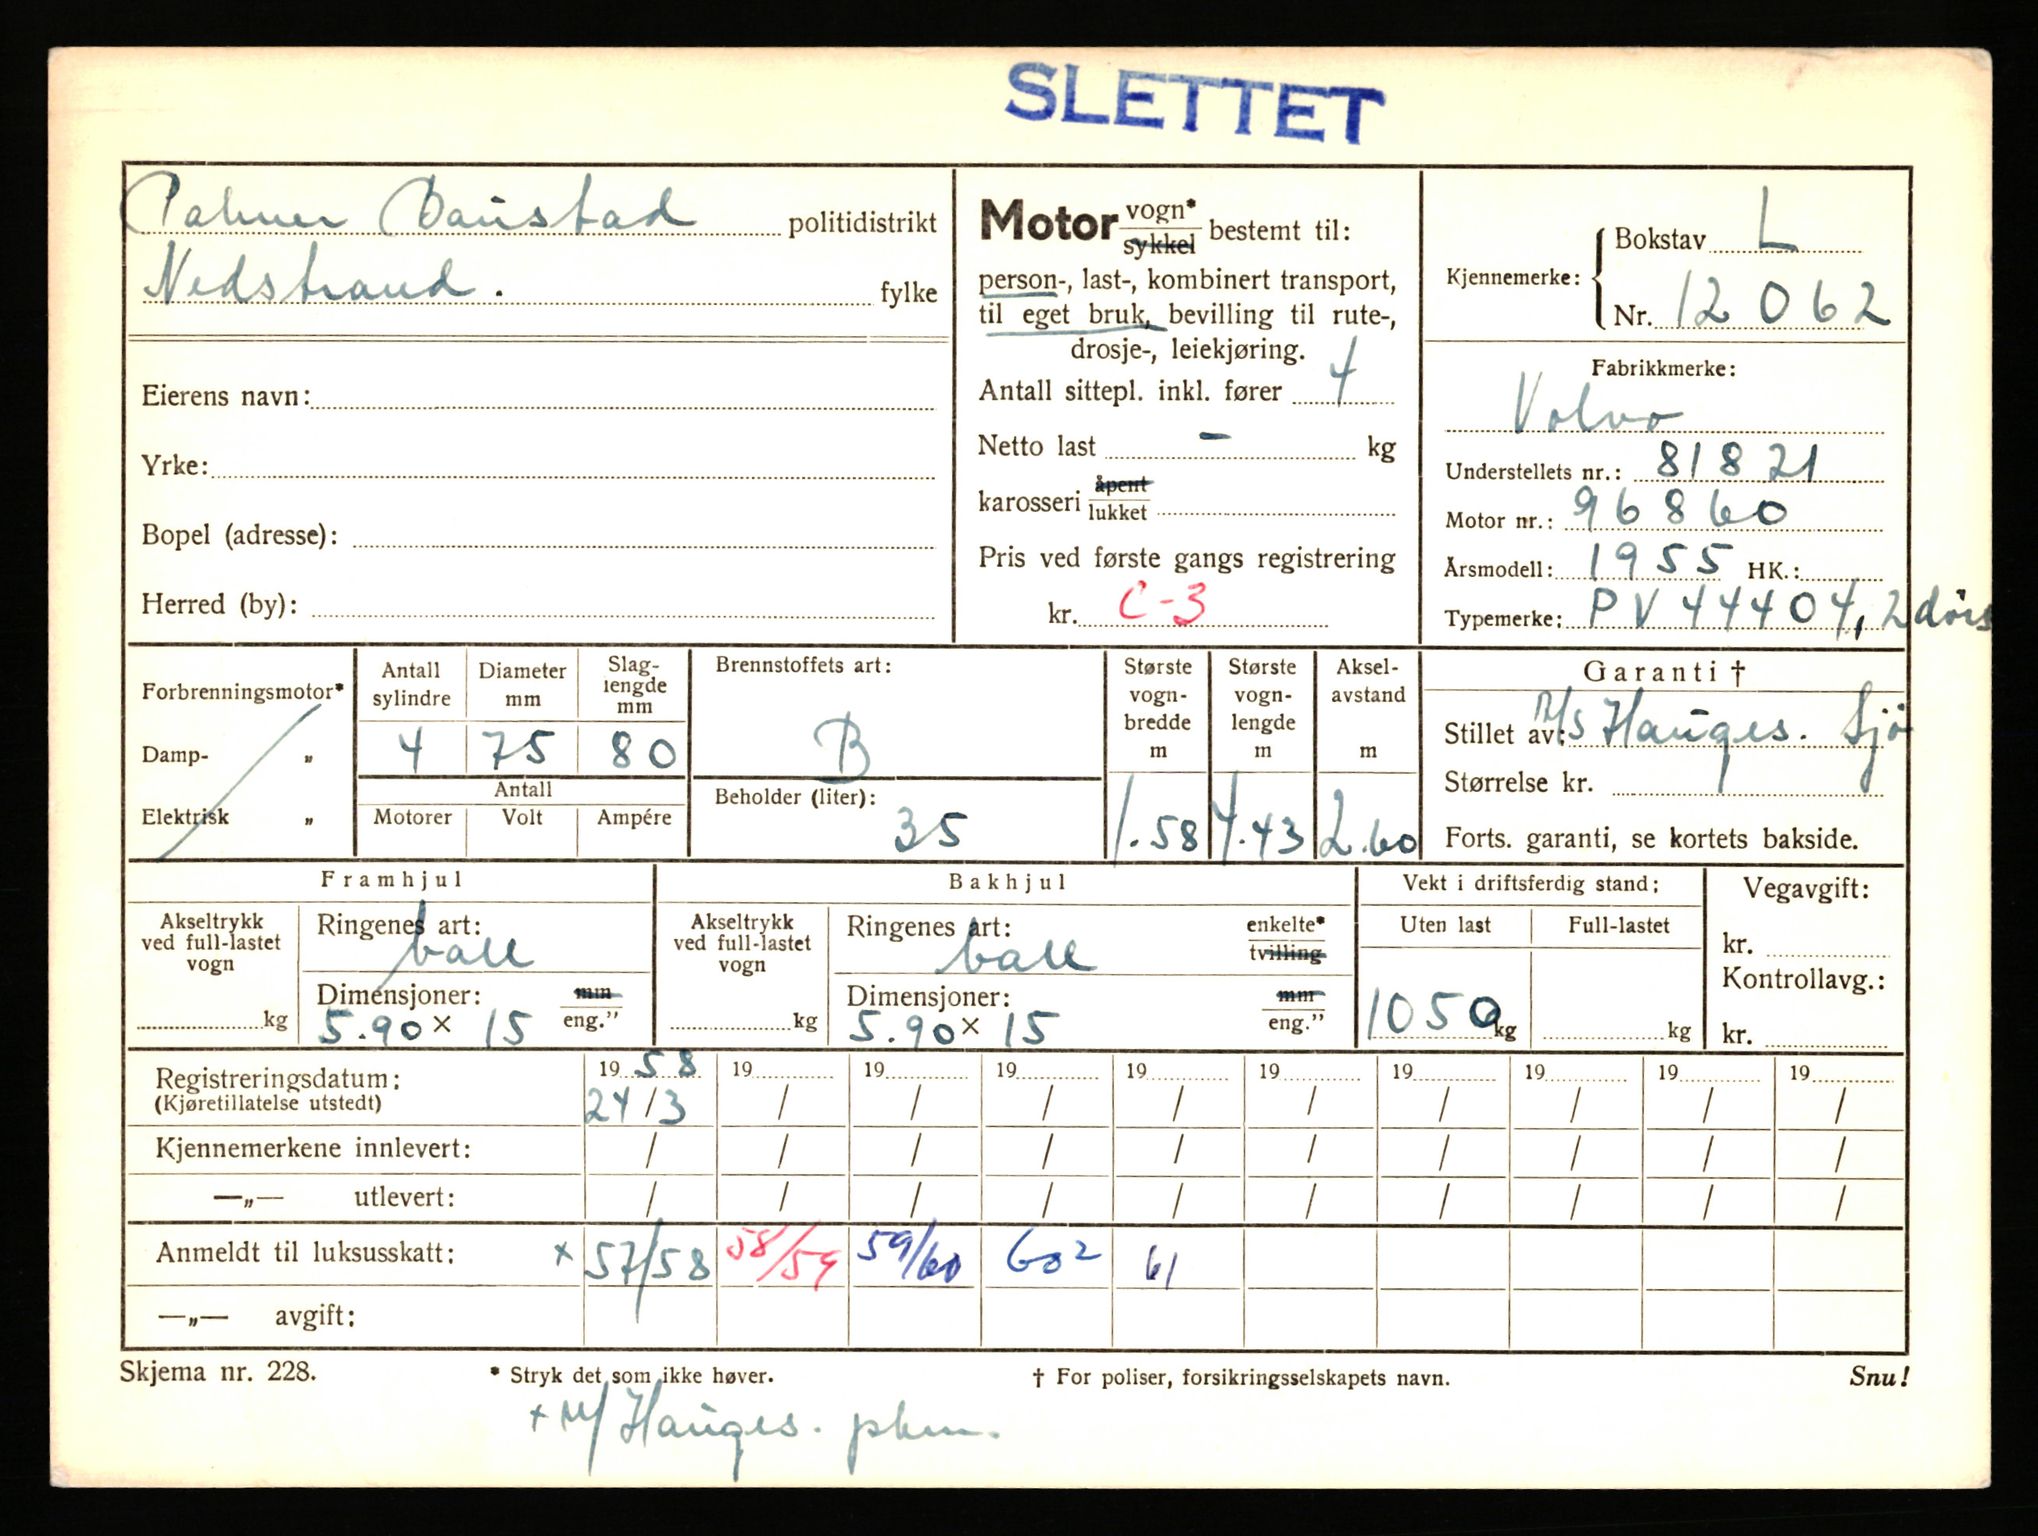 SLETTET
Palmer Baustad politidistrikt
Nedstrand. fylke
Eierens navn:
Yrke:
Bopel (adresse):
Herred (by):
Motor vogn* sykkel bestemt til:
person-, last-, kombinert transport,
til eget bruk, bevilling til rute-,
drosje-, leiekjøring.
Antall sittepl. inkl. fører 4
Netto last - kg
karosseri åpent lukket
Pris ved første gangs registrering
kr. C-3
Kjennemerke: Bokstav L
Nr. 12062
Fabrikkmerke:
Volvo
Understellets nr.: 81821
Motor nr.: 96860
Årsmodell: 1955 HK.:
Typemerke: PV 44404, 2 dørs
Forbrenningsmotor*
Damp- „
Elektrisk „
Antall sylindre
Diameter mm
Slag-lengde mm
4 75 80
Antall
Motorer Volt Ampére
Brennstoffets art:
B
Beholder (liter):
35
Største vogn-bredde m
1.58
Største vogn-lengde m
4.43
Aksel-avstand m
2.60
Garanti †
Stillet av: A/S Hauges. Sjø
Størrelse kr.
Forts. garanti, se kortets bakside.
Framhjul
Akseltrykk ved full-lastet vogn
kg
Ringenes art:
ball
Dimensjoner: mm eng."
5.90 x 15
Bakhjul
Akseltrykk ved full-lastet vogn
kg
Ringenes art: enkelte* tvilling
ball
Dimensjoner: mm eng."
5.90 x 15
Vekt i driftsferdig stand:
Uten last Full-lastet
1050 kg kg
Vegavgift:
kr.
Kontrollavg.:
kr.
Registreringsdatum: 1958 19 19 19 19 19 19 19 19 19
(Kjøretillatelse utstedt) 24/3 / / / / / / / / /
Kjennemerkene innlevert: / / / / / / / / / /
—„— utlevert: / / / / / / / / / /
Anmeldt til luksusskatt: x 57/58 58/59 59/60 60² 61
—„— avgift:
Skjema nr. 228. * Stryk det som ikke høver. † For poliser, forsikringsselskapets navn. Snu!
+ Hauges.